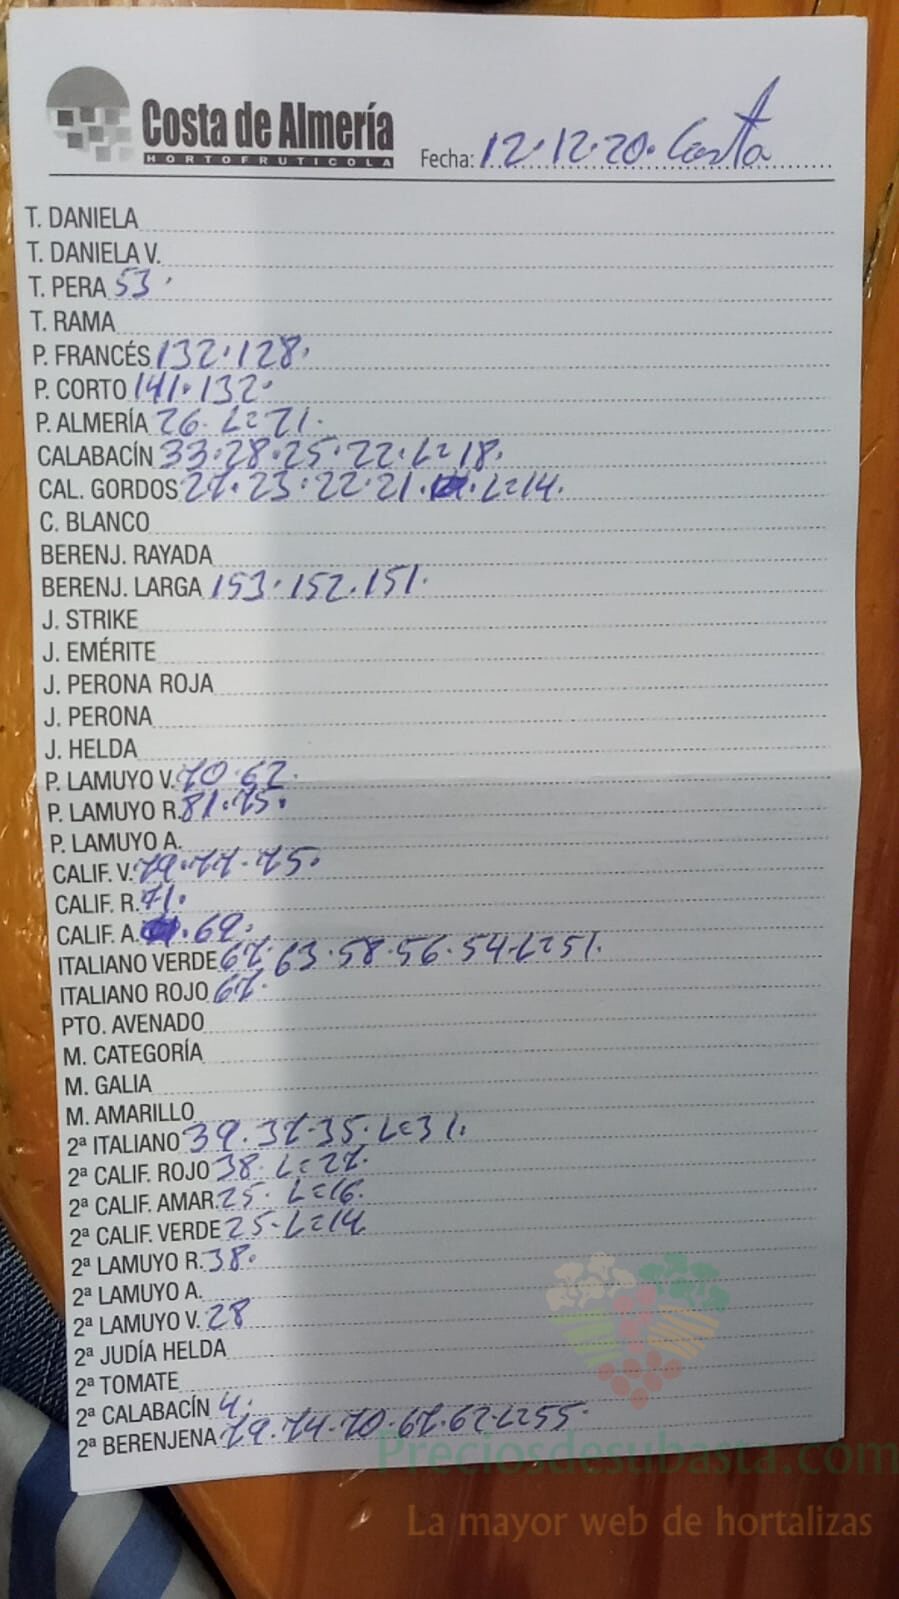 Costa de Almería
HORTOFRUTICOLA
Fecha: 12.12.20. Costa
T. DANIELA
T. DANIELA V.
T. PERA 53.
T. RAMA
P. FRANCÉS 132.128.
P. CORTO 141.132.
P. ALMERÍA 26. L=21.
CALABACÍN 33.28.25.22.L=18.
CAL. GORDOS 27.23.22.21. L=14.
C. BLANCO
BERENJ. RAYADA
BERENJ. LARGA 153.152.151.
J. STRIKE
J. EMÉRITE
J. PERONA ROJA
J. PERONA
J. HELDA
P. LAMUYO V. 70.62.
P. LAMUYO R. 81.75.
P. LAMUYO A.
CALIF. V. 79.77.75.
CALIF. R. 71.
CALIF. A. 69.
ITALIANO VERDE 67.63.58.56.54.L=51.
ITALIANO ROJO 67.
PTO. AVENADO
M. CATEGORÍA
M. GALIA
M. AMARILLO
2ª ITALIANO 39.37.35.L=31.
2ª CALIF. ROJO 38. L=27.
2ª CALIF. AMAR. 25. L=16.
2ª CALIF. VERDE 25.L=14
2ª LAMUYO R. 38.
2ª LAMUYO A.
2ª LAMUYO V. 28
2ª JUDÍA HELDA
2ª TOMATE
2ª CALABACÍN 4.
2ª BERENJENA 79.74.70.67.62.L=55.
Preciosdesubasta.com
La mayor web de hortalizas